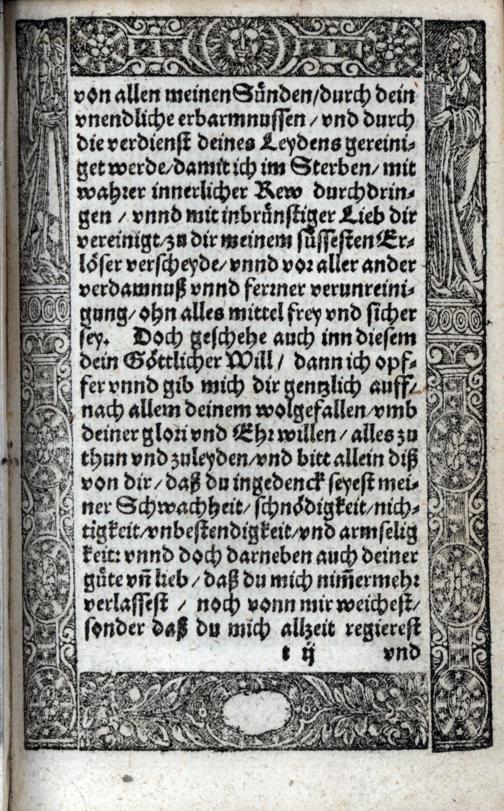 von allen meinen Sünden/durch dein
vnendliche erbarmnussen/vnd durch
die verdienst deines Leydens gereini-
get werde/damit ich im Sterben/mit
wahrer innerlicher Rew durchdrin-
gen/vnnd mit inbrünstiger Lieb dir
vereinigt/zu dir meinem süssesten Er-
löser verscheyde/vnnd vor aller ander
verdamnuß vnnd ferrner verunreini-
gung/ohn alles mittel frey vnd sicher
sey. Doch geschehe auch inn diesem
dein Göttlicher Will/dann ich opf-
fer vnnd gib mich dir gentzlich auff/
nach allem deinem wolgefallen/vmb
deiner glori vnd Ehr willen/alles zu
thun vnd zuleyden/vnd bitt allein diß
von dir/daß du ingedenck seyest mei-
ner Schwachheit/schnödigkeit/nich-
tigkeit/vnbestendigkeit/vnd armselig
keit: vnnd doch darneben auch deiner
güte vñ lieb/daß du mich nim̃ermehr
verlassest/noch vonn mir weichest/
sonder daß du mich allzeit regierest
t ij vnd